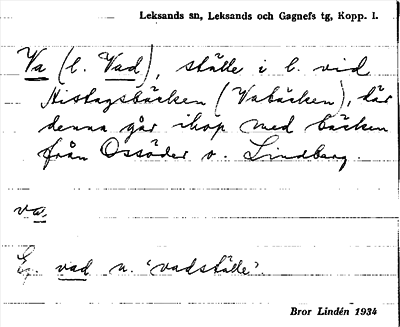 Leksands sn, Leksands och Gagnefs tg, Kopp. l.
Va (l. Vad), ställe i l. vid
Hisslagsbäcken (Vabäcken), där
denna går ihop med bäcken
från Ossöder o. Lindberg.
va.
Eg. vad n. 'vadställe'.
Bror Lindén 1934